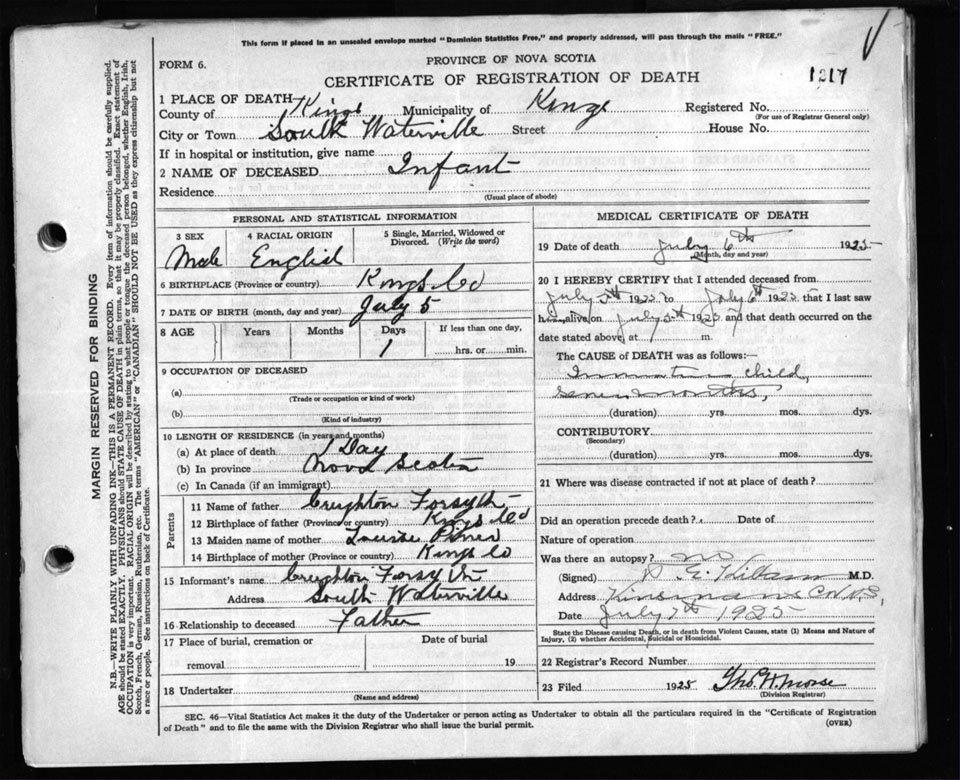 This form if placed in an unsealed envelope marked "Dominion Statistics Free," and properly addressed, will pass through the mails "FREE."
FORM 6.
PROVINCE OF NOVA SCOTIA
CERTIFICATE OF REGISTRATION OF DEATH
1217
1 PLACE OF DEATH
County of Kings Municipality of Kings Registered No.
(For use of Registrar General only)
City or Town South Waterville Street House No.
If in hospital or institution, give name
2 NAME OF DECEASED Infant
Residence
(Usual place of abode)
PERSONAL AND STATISTICAL INFORMATION
3 SEX 4 RACIAL ORIGIN 5 Single, Married, Widowed or Divorced. (Write the word)
Male English
6 BIRTHPLACE (Province or country) Kings Co
7 DATE OF BIRTH (month, day and year) July 5
8 AGE Years Months Days If less than one day,
1 hrs. or min.
9 OCCUPATION OF DECEASED
(a)
(Trade or occupation or kind of work)
(b)
(Kind of industry)
10 LENGTH OF RESIDENCE (in years and months)
(a) At place of death 1 Day
(b) In province Nova Scotia
(c) In Canada (if an immigrant)
Parents
11 Name of father Creighton Forsyth
12 Birthplace of father (Province or country) Kings Co
13 Maiden name of mother
14 Birthplace of mother (Province or country) Kings Co
15 Informant's name Creighton Forsyth
Address South Waterville
16 Relationship to deceased Father
17 Place of burial, cremation or Date of burial
removal 19
18 Undertaker
(Name and address)
MEDICAL CERTIFICATE OF DEATH
19 Date of death July 6th 1925
(Month, day and year)
20 I HEREBY CERTIFY that I attended deceased from
July 5th 1925 to July 6th 1925 that I last saw
him alive on July 5th 1925 and that death occurred on the
date stated above, at m.
The CAUSE OF DEATH was as follows:—
Immature child,
seven months,
(duration) yrs. mos. dys.
CONTRIBUTORY
(Secondary)
(duration) yrs. mos. dys.
21 Where was disease contracted if not at place of death?
Did an operation precede death? Date of
Nature of operation
Was there an autopsy? no
(Signed) M.D.
Address
Date July 7th 1925
State the Disease causing Death, or in death from Violent Causes, state (1) Means and Nature of
Injury, (2) whether Accidental, Suicidal or Homicidal.
22 Registrar's Record Number
23 Filed 1925 Thos H Morse
(Division Registrar)
SEC. 46—Vital Statistics Act makes it the duty of the Undertaker or person acting as Undertaker to obtain all the particulars required in the "Certificate of Registration
of Death" and to file the same with the Division Registrar who shall issue the burial permit. (OVER)
MARGIN RESERVED FOR BINDING
N.B.—WRITE PLAINLY WITH UNFADING INK—THIS IS A PERMANENT RECORD. Every item of information should be carefully supplied.
AGE should be stated EXACTLY. PHYSICIANS should STATE CAUSE OF DEATH in plain terms, so that it may be properly classified. Exact statement of
OCCUPATION is very important. RACIAL ORIGIN will be described by stating to what people or tongue the deceased person belonged, whether English, Irish,
Scotch, French, German, Russian, Ruthenian, etc. The terms "AMERICAN" or "CANADIAN" SHOULD NOT BE USED as they express citizenship but not
a race or people. See instructions on back of Certificate.